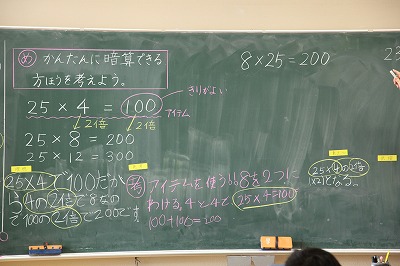 め かんたんに暗算できる
方ほうを考えよう。
25×4=100
きりがよい
アイテム
2倍
2倍
25×8=200
25×12=300
25×4で100だか
ら4の2倍で8なの
で100の2倍で200です。
考 アイテムを使うから8を2つに
わける。4と4で 25×4=100
100+100=200
8×25=200
25×4の2倍
×2になる。
23